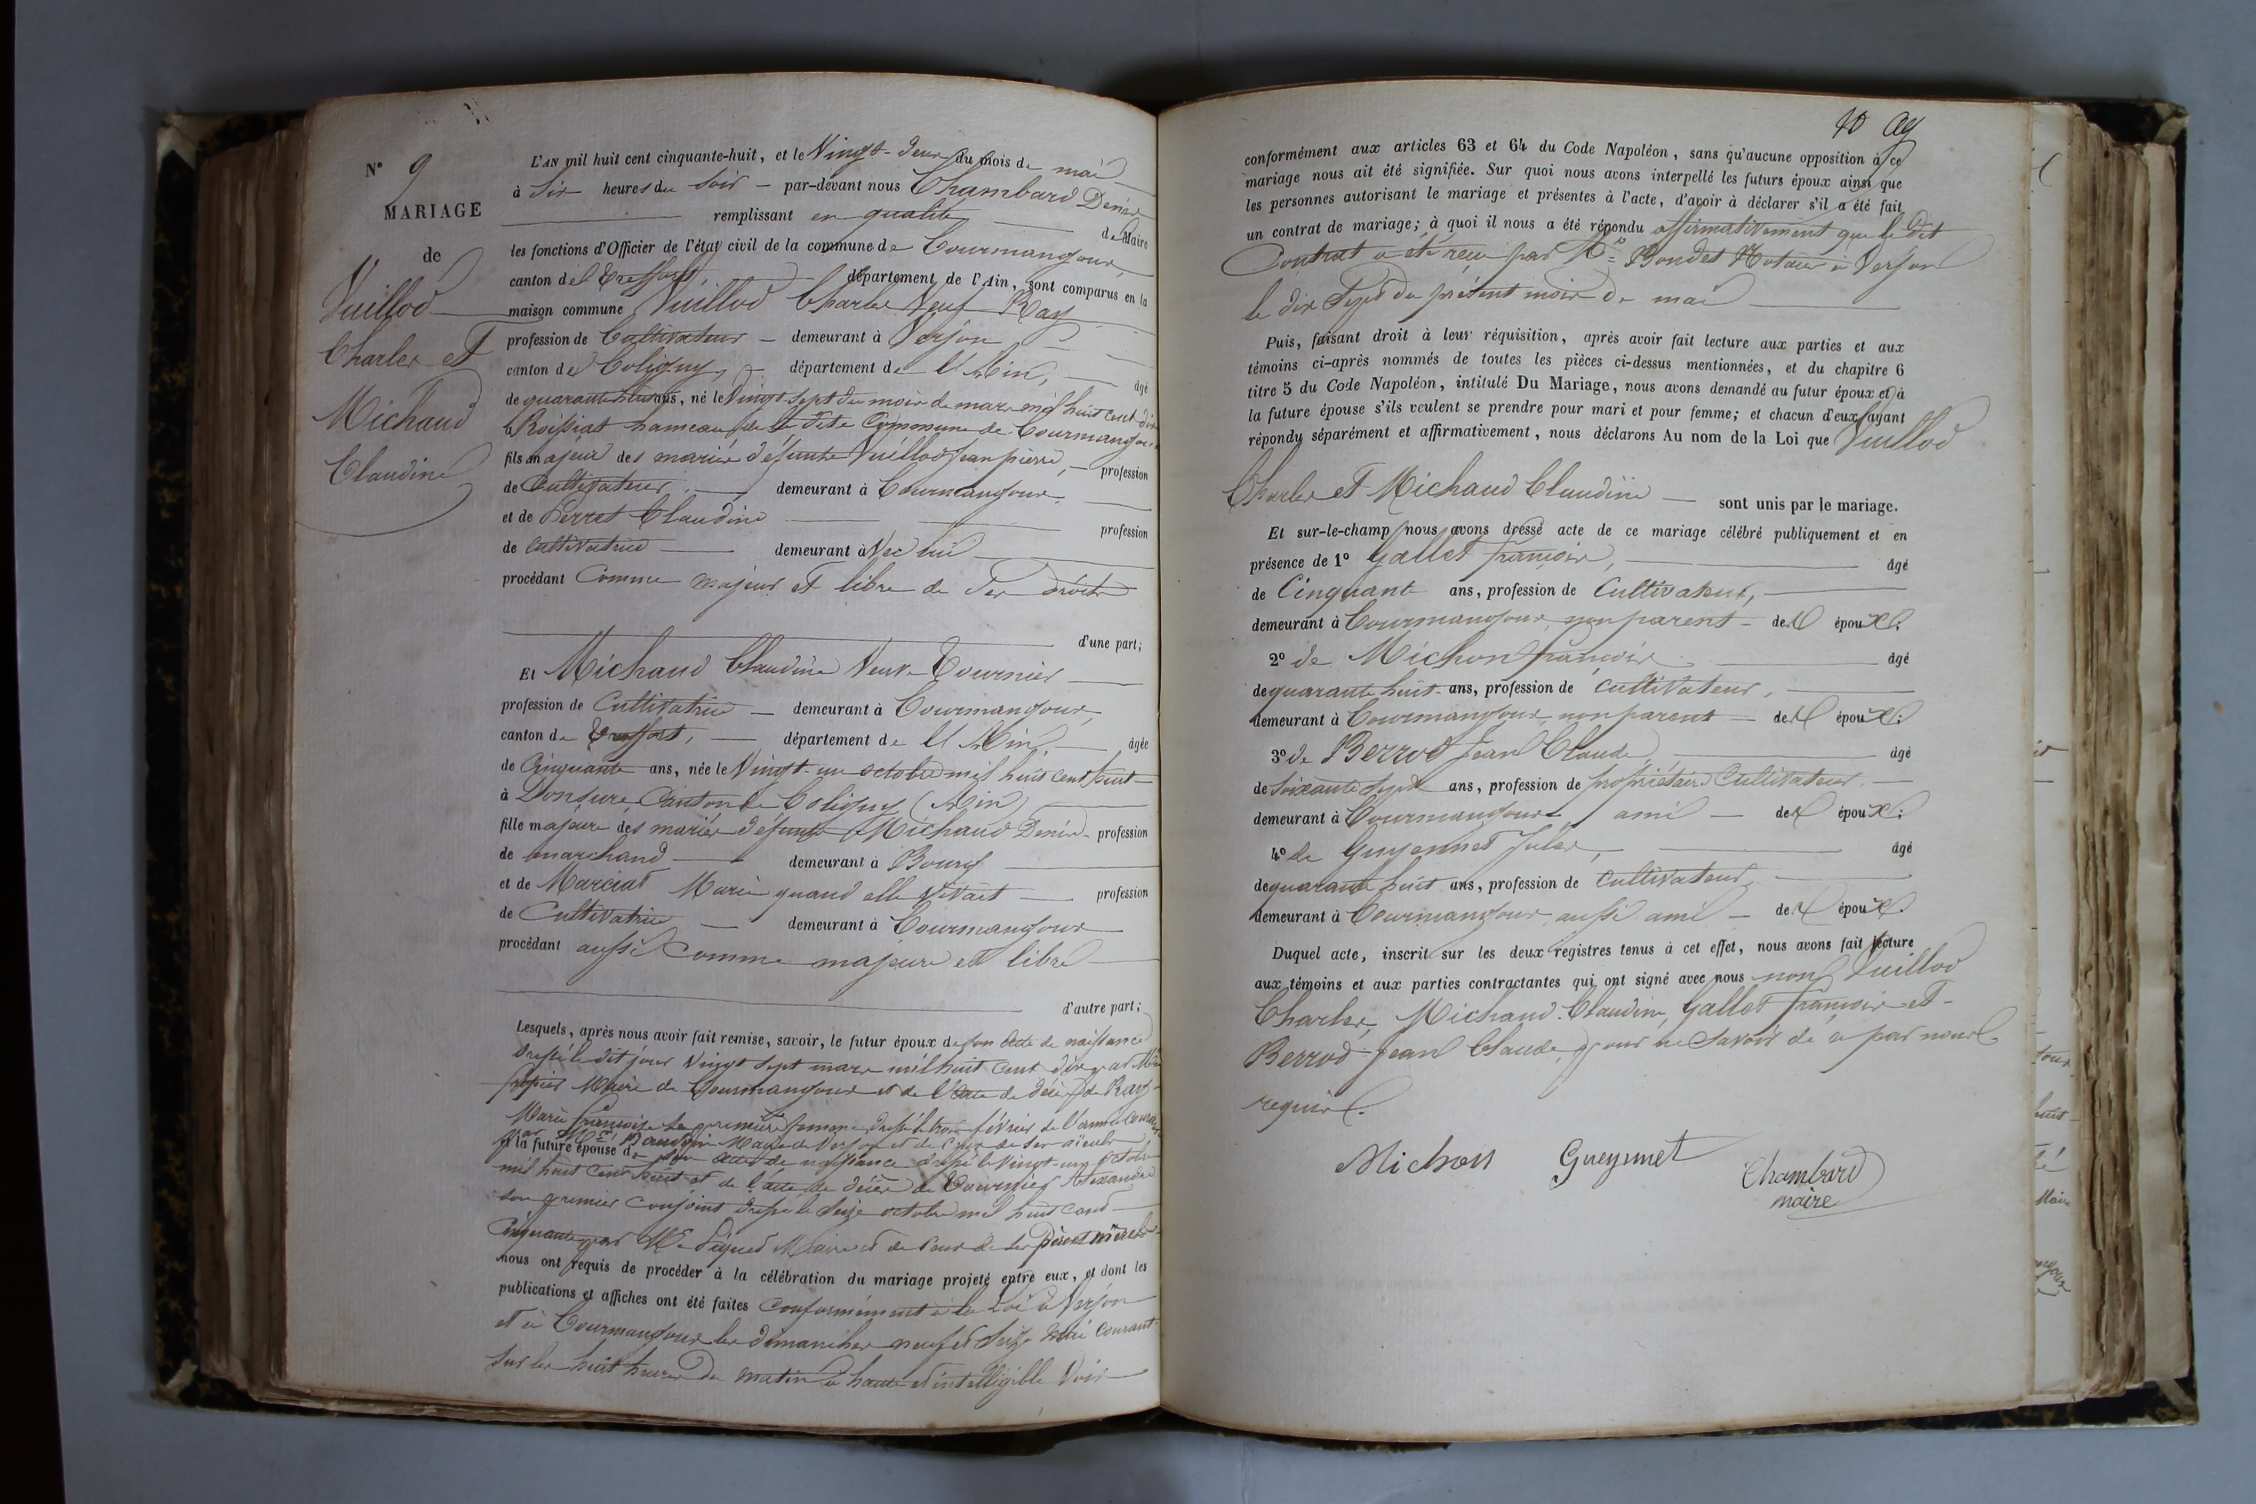 N° 9
MARIAGE
de
Vuillod
Charles et
Michaud
Claudine
L'AN mil huit cent cinquante-huit, et le Vingt-deux du mois de mai
à Six heures du Soir — par-devant nous Chambard Denis
remplissant en qualité de Maire
les fonctions d'Officier de l'état civil de la commune de Courmangoux,
canton de Treffort, département de l'Ain, sont comparus en la
maison commune Vuillod Charles Veuf Ray
profession de Cultivateur — demeurant à Verjon
canton de Coligny, département de l'Ain, âgé
de quarante huit ans, né le Vingt-sept du mois de mars mil huit cent dix
à Roissiat hameau de la dite Commune de Courmangoux
fils majeur des mariés défunts Vuillod Jean pierre, profession
de Cultivateur. — demeurant à Courmangoux.
et de Perret Claudine profession
de cultivatrice — demeurant à Vec lui
procédant Comme majeur et libre de Ses droits
d'une part;
Et Michaud Claudine Veuve Tournier
profession de Cultivatrice — demeurant à Courmangoux,
canton de Treffort, — département de l'Ain, — âgée
de Cinquante ans, née le Vingt-un octobre mil huit cent huit
à Donsure Canton de Coligny (Ain)
fille majeure des mariés défunts Michaud Denis profession
de marchand — demeurant à Bourg
et de Marciat Marie quand elle vivait — profession
de Cultivatrice — demeurant à Courmangoux
procédant aussi Comme majeure et libre
d'autre part;
Lesquels, après nous avoir fait remise, savoir, le futur époux de son acte de naissance
dressé le dit jour Vingt sept mars mil huit cent dix par
Maire de Courmangoux et de l'acte de décès de Ray
Marie françoise Sa première femme dressé le trois février de l'année courante
par Maire de Verjon et de ceux de ses aïeuls
et la future épouse de son acte de naissance dressé le Vingt-un octobre
mil huit cent huit et de l'acte de décès de Tournier Alexandre
Son premier conjoint dressé le Seize octobre mil huit cent
Cinquante par Maire et de ceux de ses père et mère
nous ont requis de procéder à la célébration du mariage projeté entre eux, et dont les
publications et affiches ont été faites Conformément à la Loi à Verjon
et à Courmangoux les dimanches neuf et Seize mai courant
Sur les huit heures du matin à haute et intelligible Voix
10
conformément aux articles 63 et 64 du Code Napoléon, sans qu'aucune opposition à ce
mariage nous ait été signifiée. Sur quoi nous avons interpellé les futurs époux ainsi que
les personnes autorisant le mariage et présentes à l'acte, d'avoir à déclarer s'il a été fait
un contrat de mariage; à quoi il nous a été répondu affirmativement que le dit
Contrat a été reçu par Me Bondet Notaire à Verjon
le dix Sept du présent mois de mai
Puis, faisant droit à leur réquisition, après avoir fait lecture aux parties et aux
témoins ci-après nommés de toutes les pièces ci-dessus mentionnées, et du chapitre 6
titre 5 du Code Napoléon, intitulé Du Mariage, nous avons demandé au futur époux et à
la future épouse s'ils veulent se prendre pour mari et pour femme; et chacun d'eux ayant
répondu séparément et affirmativement, nous déclarons Au nom de la Loi que Vuillod
Charles et Michaud Claudine — sont unis par le mariage.
Et sur-le-champ nous avons dressé acte de ce mariage célébré publiquement et en
présence de 1° Gallet françois, âgé
de Cinquante ans, profession de Cultivateur,
demeurant à Courmangoux, non parent — des époux.
2° de Michon françois âgé
de quarante huit ans, profession de Cultivateur,
demeurant à Courmangoux, non parent — des époux.
3° de Berrod Jean Claude âgé
de Soixante Sept ans, profession de propriétaire Cultivateur.
demeurant à Courmangoux ami — des époux.
4° de Gueyennet Jules, âgé
de quarante huit ans, profession de Cultivateur
demeurant à Courmangoux aussi ami — des époux.
Duquel acte, inscrit sur les deux registres tenus à cet effet, nous avons fait lecture
aux témoins et aux parties contractantes qui ont signé avec nous non Vuillod
Charles, Michaud Claudine, Gallet françois et
Berrod Jean Claude pour ne Savoir de ce par nous
requis.
Michon Gueynnet Chambard
maire